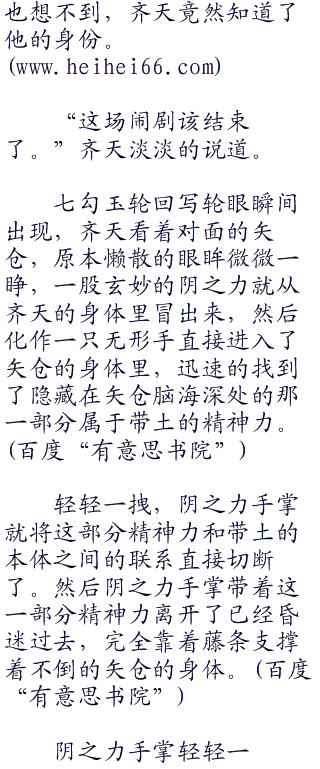 也想不到，齐天竟然知道了
他的身份。
(www.heihei66.com)
“这场闹剧该结束
了。”齐天淡淡的说道。
七勾玉轮回写轮眼瞬间
出现，齐天看着对面的矢
仓，原本懒散的眼眸微微一
睁，一股玄妙的阴之力就从
齐天的身体里冒出来，然后
化作一只无形手直接进入了
矢仓的身体里，迅速的找到
了隐藏在矢仓脑海深处的那
一部分属于带土的精神力。
(百度“有意思书院”)
轻轻一拽，阴之力手掌
就将这部分精神力和带土的
本体之间的联系直接切断
了。然后阴之力手掌带着这
一部分精神力离开了已经昏
迷过去，完全靠着藤条支撑
着不倒的矢仓的身体。(百度
“有意思书院”)
阴之力手掌轻轻一